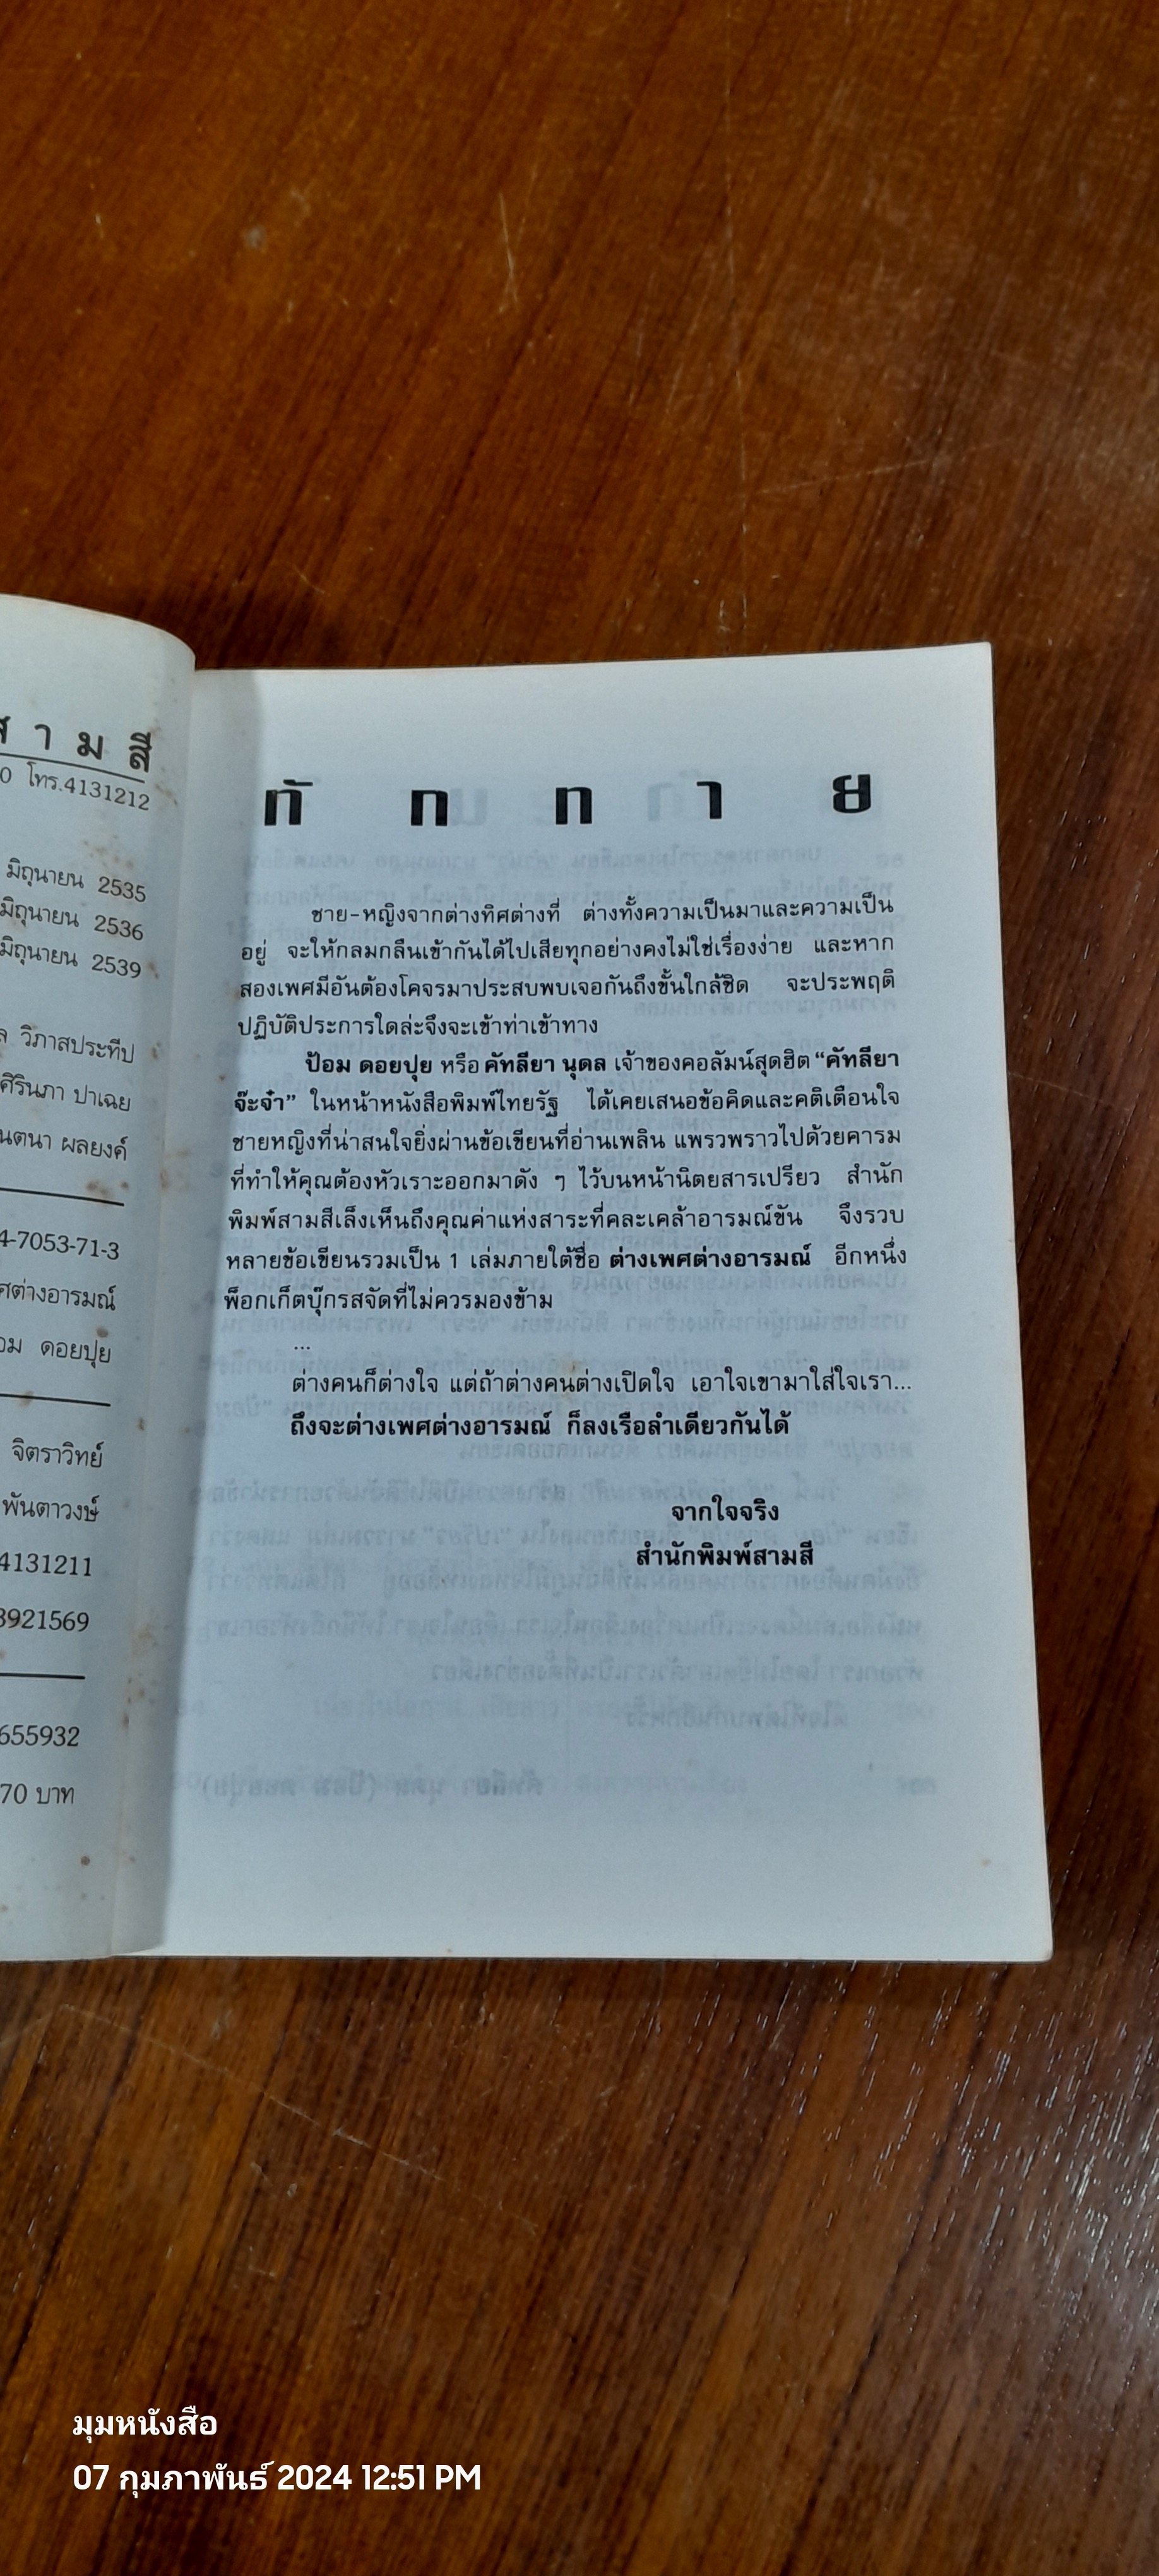 สามสี
0 โทร.4131212
มิถุนายน 2535
มิถุนายน 2536
มิถุนายน 2539
วิภาสประทีป
ศิรินภา ปาเฉย
ผลยงค์
4-7053-71-3
ศต่างอารมณ์
อม ดอยปุย
จิตราวิทย์
พันตาวงษ์
4131211
3921569
655932
70 บาท
ทักทาย
ชาย-หญิงจากต่างทิศต่างที่ ต่างทั้งความเป็นมาและความเป็น
อยู่ จะให้กลมกลืนเข้ากันได้ไปเสียทุกอย่างคงไม่ใช่เรื่องง่าย และหาก
สองเพศมีอันต้องโคจรมาประสบพบเจอกันถึงขั้นใกล้ชิด จะประพฤติ
ปฏิบัติประการใดล่ะจึงจะเข้าท่าเข้าทาง
ป้อม ดอยปุย หรือ คัทลียา นุดล เจ้าของคอลัมน์สุดฮิต “คัทลียา
จ๊ะจ๋า” ในหน้าหนังสือพิมพ์ไทยรัฐ ได้เคยเสนอข้อคิดและคติเตือนใจ
ชายหญิงที่น่าสนใจยิ่งผ่านข้อเขียนที่อ่านเพลิน แพรวพราวไปด้วยคารม
ที่ทำให้คุณต้องหัวเราะออกมาดัง ๆ ไว้บนหน้านิตยสารเปรียว สำนัก
พิมพ์สามสีเล็งเห็นถึงคุณค่าแห่งสาระที่คละเคล้าอารมณ์ขัน จึงรวบ
หลายข้อเขียนรวมเป็น 1 เล่มภายใต้ชื่อ ต่างเพศต่างอารมณ์ อีกหนึ่ง
พ็อกเก็ตบุ๊กรสจัดที่ไม่ควรมองข้าม
...
ต่างคนก็ต่างใจ แต่ถ้าต่างคนต่างเปิดใจ เอาใจเขามาใส่ใจเรา...
ถึงจะต่างเพศต่างอารมณ์ ก็ลงเรือลำเดียวกันได้
จากใจจริง
สำนักพิมพ์สามสี
มุมหนังสือ
07 กุมภาพันธ์ 2024 12:51 PM